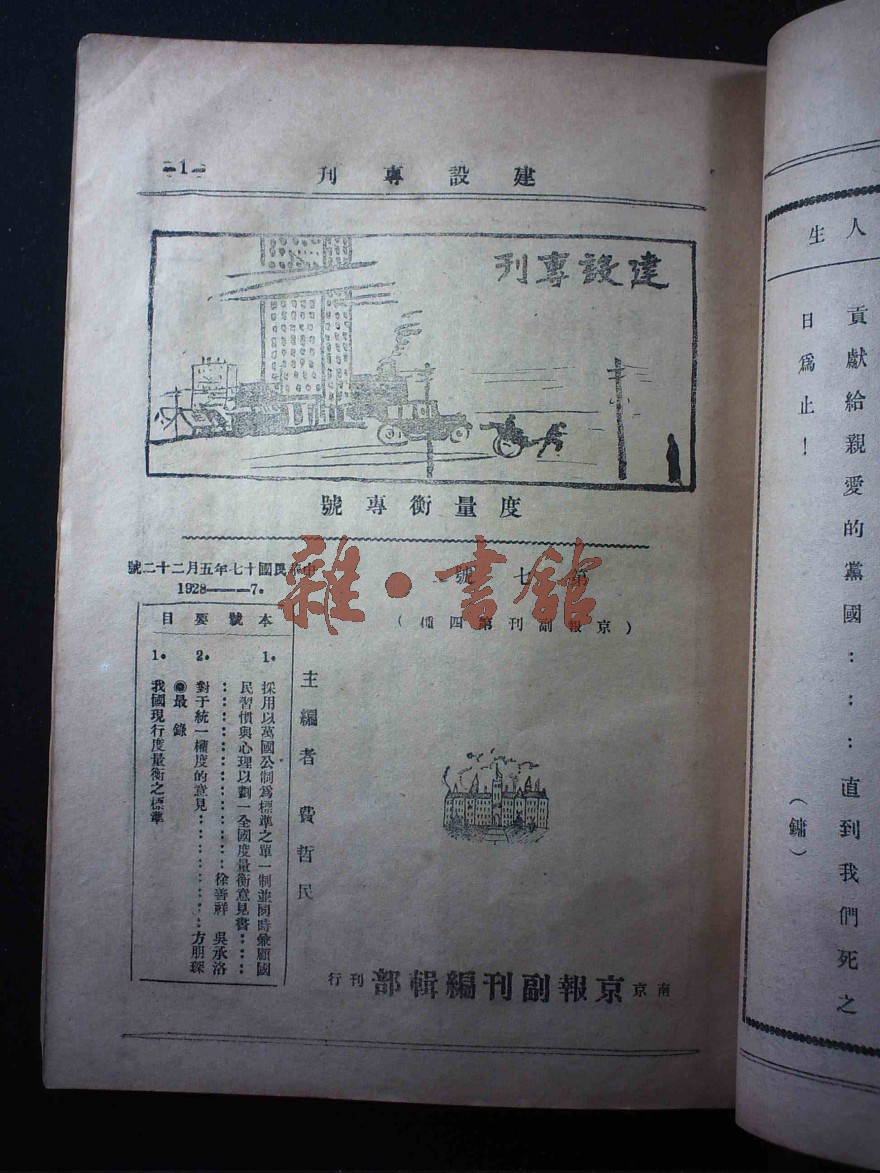 建設專刊
-1-
建設專刊
度量衡專號
第七號
中華民國十七年五月二十二號
1928———7.
(京報副刊第四種)
本號要目
1. 採用以萬國公制爲標準之單一制並同時兼顧國
民習慣與心理以劃一全國度量衡意見書……
……………………徐善祥 吳承洛
2. 對于統一權度的意見……………方朋琛
◉最錄
1. 我國現行度量衡之標準
主編者 費哲民
南京京報副刊編輯部刊行
雜·書館
人生
貢獻給親愛的黨國:::直到我們死之
日爲止!
(鏞)